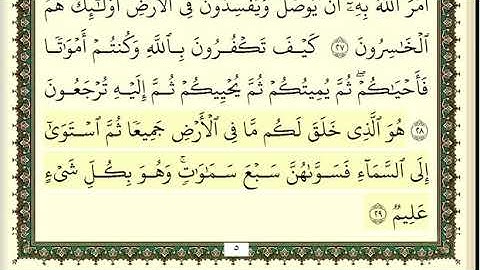 أَمَرَ ٱللَّهُ بِهِۦٓ أَن يُوصَلَ وَيُفْسِدُونَ فِى ٱلْأَرْضِ أُو۟لَـٰٓئِكَ هُمُ
ٱلْخَـٰسِرُونَ ٢٧ كَيْفَ تَكْفُرُونَ بِٱللَّهِ وَكُنتُمْ أَمْوَٰتًا
فَأَحْيَـٰكُمْ ۖ ثُمَّ يُمِيتُكُمْ ثُمَّ يُحْيِيكُمْ ثُمَّ إِلَيْهِ تُرْجَعُونَ
٢٨ هُوَ ٱلَّذِى خَلَقَ لَكُم مَّا فِى ٱلْأَرْضِ جَمِيعًا ثُمَّ ٱسْتَوَىٰٓ
إِلَى ٱلسَّمَآءِ فَسَوَّىٰهُنَّ سَبْعَ سَمَـٰوَٰتٍ ۚ وَهُوَ بِكُلِّ شَىْءٍ
عَلِيمٌ ٢٩
٥